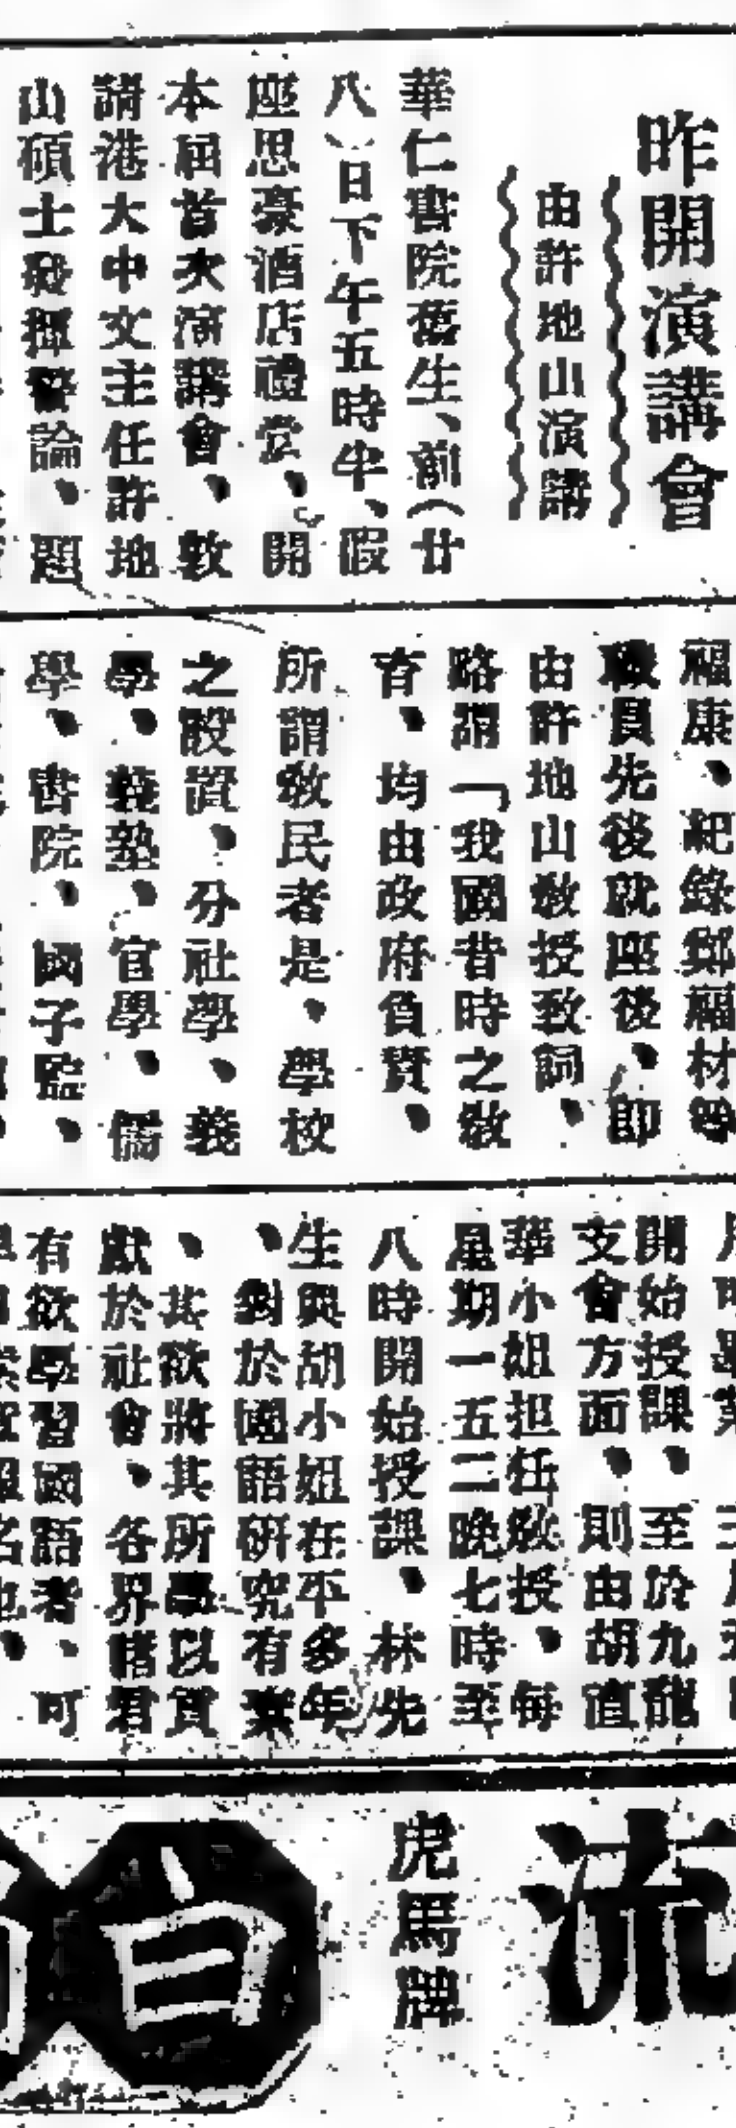 昨開演講會
由許地山演講
華仁書院舊生、前（廿
八）日下午五時半、假
座思豪酒店禮堂、開
本屆首次演講會、敦
請港大中文主任許地
山碩士發揮讜論、題
福康、紀錄鄭福材等
職員先後就座後、即
由許地山敎授致詞、
略謂「我國昔時之敎
育、均由政府負責、
所謂敎民者是、學校
之設置、分社學、義
學、義塾、官學、儒
學、書院、國子監、
開始授課、至於九龍
支會方面、則由胡直
華小姐担任敎授、每
星期一五二晚七時至
八時開始授課、林先
生與胡小姐在平多年
、對於國語研究有素
、其欲將其所學以貢
獻於社會、各界諸君
有欲學習國語者、可
流
虎馬牌
白